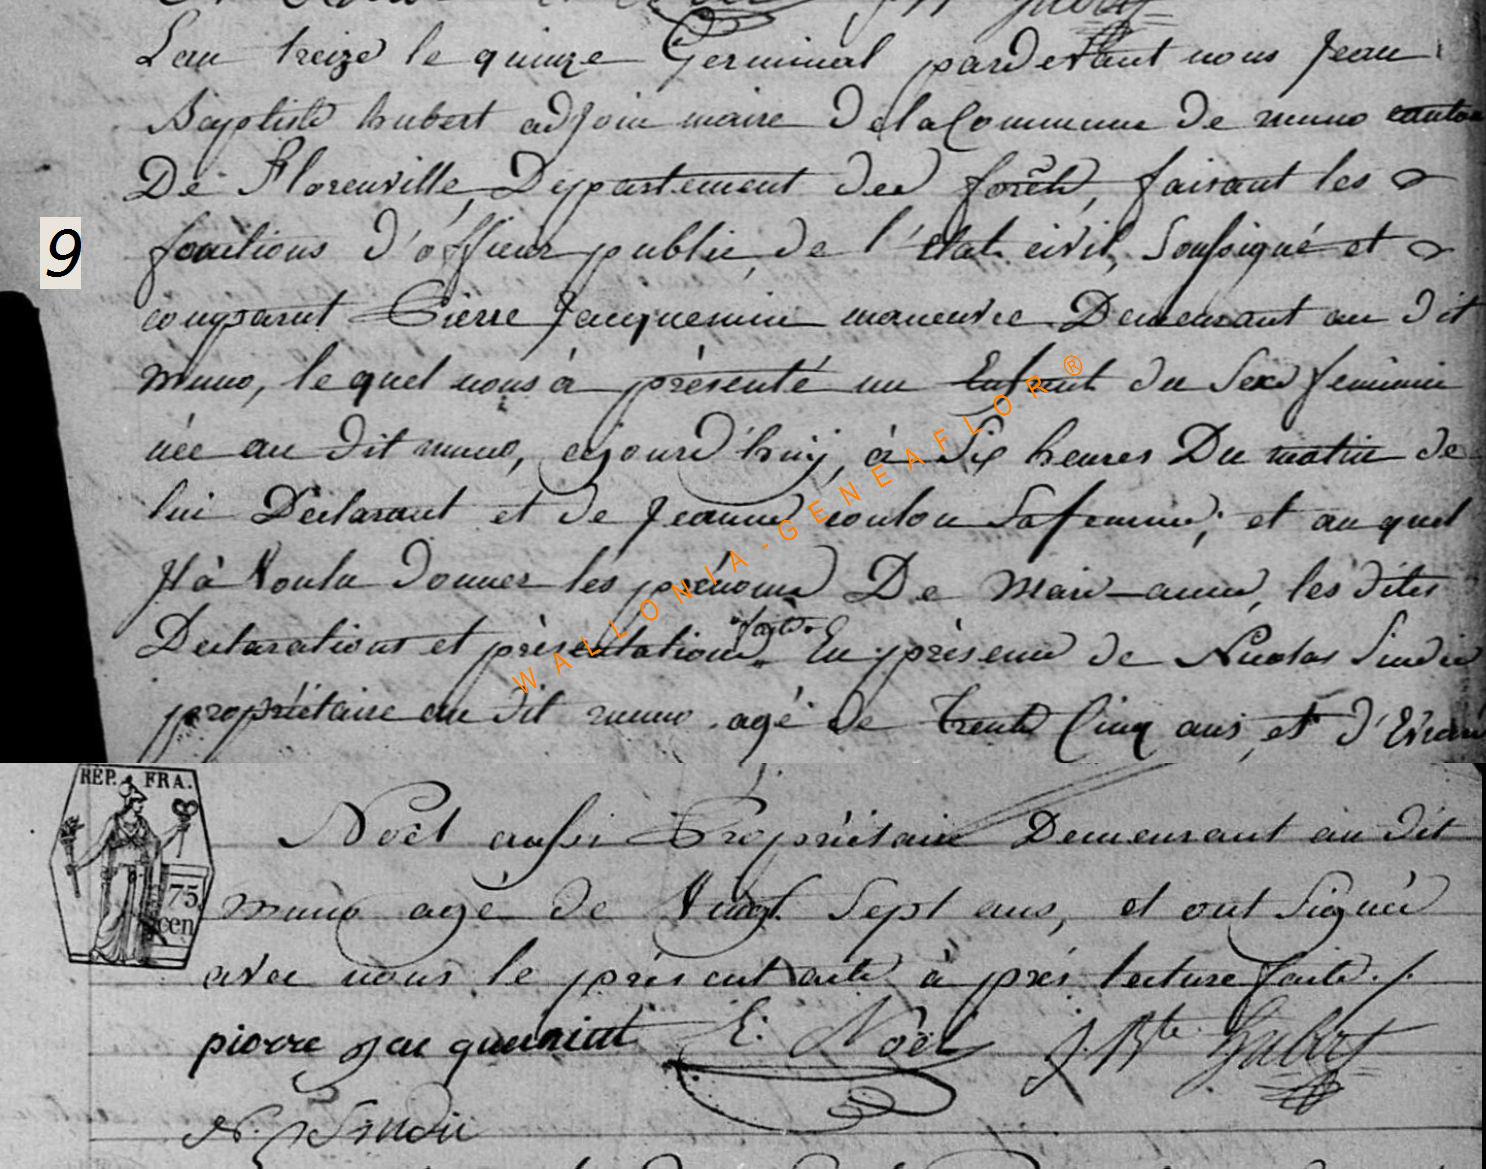 L'an treize le quinze Germinal pardevant nous Jean
Baptiste hubert adjoin maire de la Commune de muno canton
De Florenville, Departement des forêts, faisant les
9
fonctions d'officier public, de l'etat civil, Soussigné et
comparut Pierre Jacquemin maneuvre Demeurant au dit
muno, le quel nous à présenté un Enfant du Sexe feminin
née au dit muno, ejourd'huij, à dix heures Du matin de
lui Déclarant et de Jeanne coulon Sa femme; et au quel
Il à Voulu donner les prénoms De Marie-anne, les dites
Declarations et présentations faites En présence de Nicolas Sindic
propriétaire au dit muno agé de trente Cinq ans, et d'Evrard
WALLONIA-GENEAFLOR®
RÉP. FRA.
75
cen
Noël aussi Propriétaire Demeurant au dit
muno agé de Vingt Sept ans, et ont Signés
avec nous le présent acte à prés lecture faite./.
pierre jacquemint E. Noël J. Bte. Hubert
N. Sindic